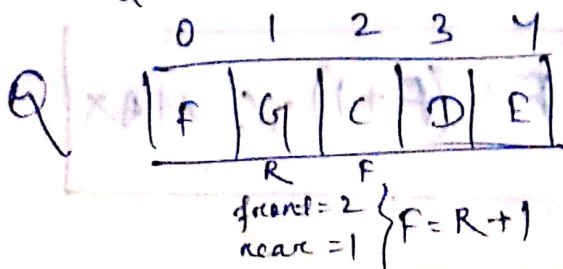 0 1 2 3 4
Q F G C D E
R F
front = 2
rear = 1 } F = R + 1